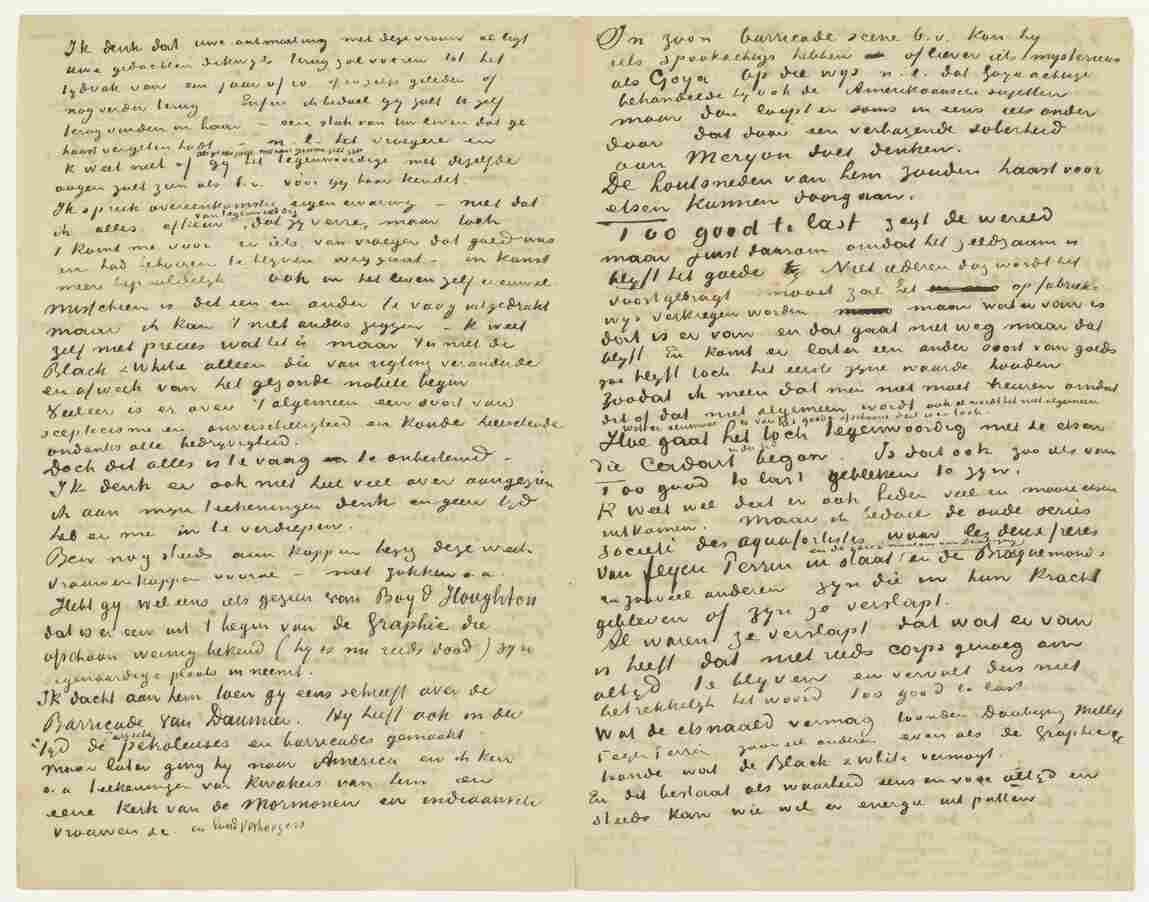 Ik denk dat uwe ontmoeting met deze vrouw al ligt
uwe gedachten dikwijls terug zal voeren tot het
tydvak van een jaar of 10 geleden of
nog verder terug. Enfin ik bedoel gy zult U zelf
terug vinden in haar – een stuk van Uw leven dat ge
haast vergeten hadt – n.l. het vroegere en
k weet niet of gy het tegenwoordige met dezelfde
oogen zult zien als b.v. vóór gy haar kendet.
Ik spreek overeenkomstig eigen ervaring – niet dat
ik alles afkeur van tegenwoordig, dat zy verre, maar toch
't komt me voor er iets van vroeger dat goed was
en had behooren te blyven weg gaat – in kunst
meer bepaaldelyk ook in het leven zelf evenwel
Misschien is dat een en ander te vaag uitgedrukt
maar ik kan 't niet anders zeggen – k weet
zelf niet precies wat het is maar 't is niet de
Black & White alleen die van rigting veranderde
en afweek van het gezonde nobele begin
Veeleer is er over 't algemeen een soort van
scepticisme en onverschilligheid en koude heerschende
ondanks alle bedryvigheid.
Doch dit alles is te vaag te onbestemd –
Ik denk er ook niet heel veel over aangezien
ik aan myn teekeningen denk en geen tyd
heb er me in te verdiepen.
Ben nog steeds aan koppen bezig deze week
vrouwenkoppen vooral – met zakken o.a.
Hebt gy wel eens iets gezien van Boyd Houghton
dat is er een uit 't begin van de Graphic die
ofschoon weinig bekend (hy is nu reeds dood) zyn
eigenaardige plaats in neemt.
Ik dacht aan hem toen gy eens schreeft over de
Barricade van Daumier. Hy heeft ook in der
tyd de petroleuses en barricades gemaakt.
Maar later ging hy naar America en ik ken
o.a teekeningen van Kwakers van hem en
eene Kerk van de Mormonen en indiaansche
vrouwen &c. en landverhuizers
In zoon barricade scene b.v. kon hy
iets spookachtigs hebben of liever iets mysterieus
als Goya Op die wys n.l. dat Goya achtige
behandelde hy ook de Amerikaansche sujetten
maar dan loopt er soms in eens iets anders
door dat door een verbazende soberheid
aan Meryon doet denken.
De houtsneden van hem zouden haast voor
etsen kunnen doorgaan.
Too good to last zegt de wereld
maar juist daarom omdat het zeldzaam is
blyft het goede Niet iederen dag wordt het
voortgebragt nooit zal het op fabrieks
wys verkregen worden maar wat er van is
dat is er van en dat gaat niet weg maar dat
blyft En komt er later een ander soort van goeds
zoo blyft toch het eerste zyne waarde houden
Zoodat ik meen dat men niet moet treuren omdat
dit of dat niet algemeen wordt ook al wordt het niet algemeen
Hoe gaat het toch tegenwoordig met de etsen
die Cadart indertyd begon. Is dat ook zoo iets van
Too good to last gebleken te zyn.
k weet wel dat er ook heden veel en mooie etsen
uitkomen. Maar ik bedoel de oude series
Societé des aquafortistes waar les deux freres
van Feyen Perrin in staat en de Braquemonds
en zooveel anderen zyn die in hun kracht
gebleven of zyn ze verslapt.
Al waren ze verslapt dat wat er van
is heeft dat niet reeds corps genoeg om
altyd te blyven en vervalt dus niet
betrekkelyk het woord too good to last
Wat de etsnaald vermag toonden Daubigny Millet
Feyen Perrin zooveel anderen even als de Graphic &c
toonde wat de Black & White vermogt.
En dit bestaat als waarheid eens en voor altyd en
steeds kan wie wil er energie uit putten